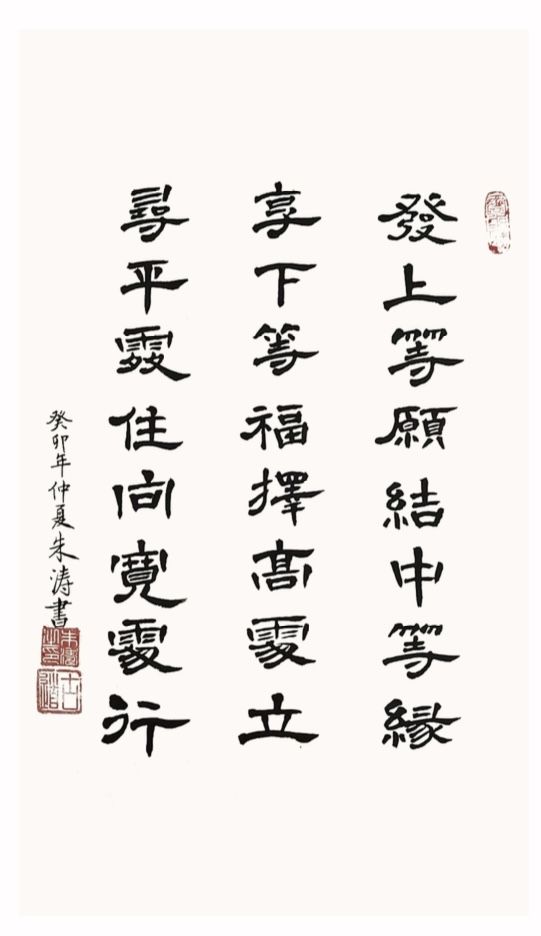 發上等願結中等緣
享下等福擇高處立
尋平處住向寬處行
癸卯年仲夏朱涛書